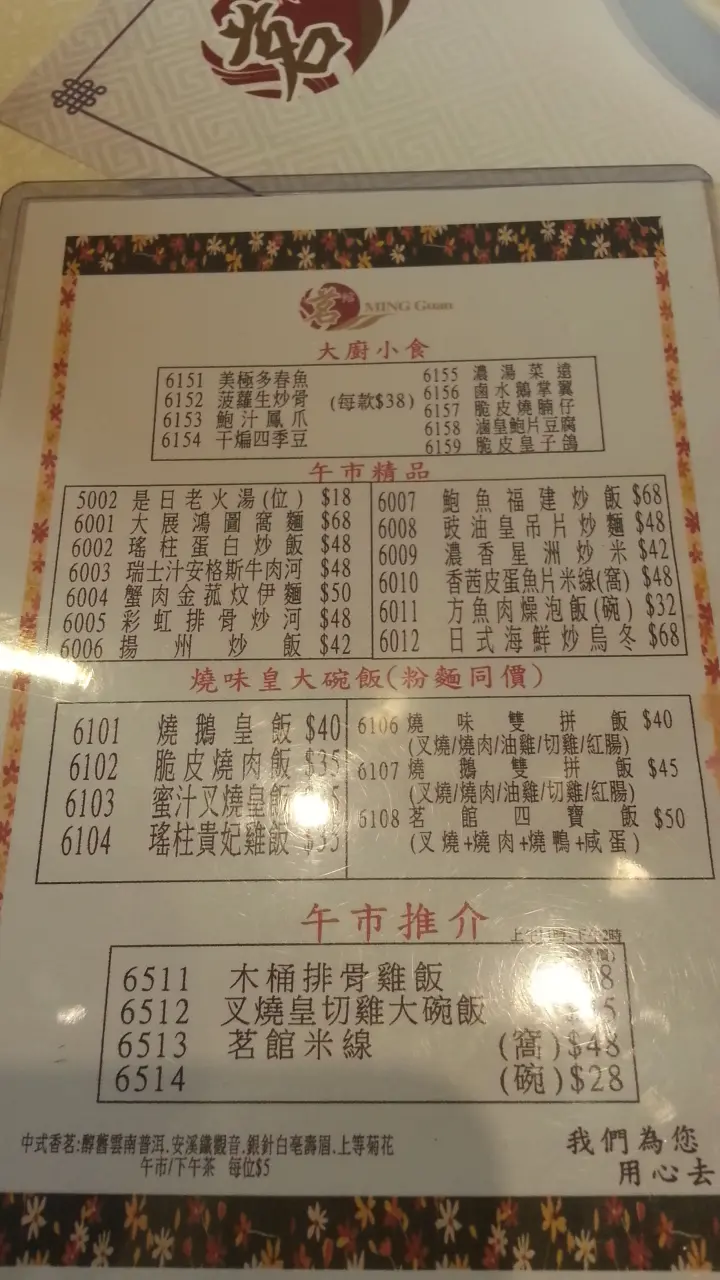 茗
茗館 MING Guan
大廚小食
6151 美極多春魚
6152 菠蘿生炒骨
6153 鮑汁鳳爪
6154 干煸四季豆
(每款$38)
6155 濃湯菜遠
6156 鹵水鵝掌翼
6157 脆皮燒腩仔
6158 滷皇鮑片豆腐
6159 脆皮皇子鴿
午市精品
5002 是日老火湯(位) $18
6001 大展鴻圖窩麵 $68
6002 瑤柱蛋白炒飯 $48
6003 瑞士汁安格斯牛肉河 $48
6004 蟹肉金菰炆伊麵 $50
6005 彩虹排骨炒河 $48
6006 揚州炒飯 $42
6007 鮑魚福建炒飯 $68
6008 豉油皇吊片炒麵 $48
6009 濃香星洲炒米 $42
6010 香茜皮蛋魚片米線(窩) $48
6011 方魚肉燥泡飯(碗) $32
6012 日式海鮮炒烏冬 $68
燒味皇大碗飯(粉麵同價)
6101 燒鵝皇飯 $40
6102 脆皮燒肉飯 $35
6103 蜜汁叉燒皇飯
6104 瑤柱貴妃雞飯 $35
6106 燒味雙拼飯 $40
(叉燒/燒肉/油雞/切雞/紅腸)
6107 燒鵝雙拼飯 $45
(叉燒/燒肉/油雞/切雞/紅腸)
6108 茗館四寶飯 $50
(叉燒+燒肉+燒鴨+咸蛋)
午市推介
6511 木桶排骨雞飯
6512 叉燒皇切雞大碗飯
6513 茗館米線 (窩)$48
6514 (碗)$28
中式香茗:醇舊雲南普洱.安溪鐵觀音.銀針白亳壽眉.上等菊花
午市/下午茶 每位$5
我們為您
用心去